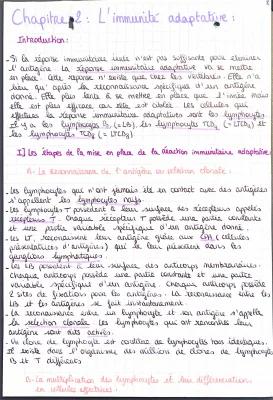 Chapitre 2 : L'immunité adaptative :
Introduction :
- Si la réponse immunitaire innée n'est pas suffisante pour éliminer
l'antigène la réponse immunitaire adaptative va se mettre
en place. Cette réponse n'existe que chez les vertébrés. Elle n'a
lieu qu'après la reconnaissance spécifique d'un antigène
donné. Elle est plus lente à se mettre en place que l'innée mais
elle est plus efficace car elle est ciblée. Les cellules qui
effectuent la réponse immunitaire adaptative sont les lymphocytes.
Il y a les lymphocytes B, (=LB), les lymphocytes TCD4 (=LTCD4) et
les lymphocytes TCD8 (=LTCD8)
I] Les étapes de la mise en place de la réaction immunitaire adaptative :
A- La reconnaissance de l'antigène ou sélection clonale.
- Les lymphocytes qui n'ont jamais été en contact avec des antigènes
s'appellent les lymphocytes naïfs.
- Les lymphocytes T possèdent à leur surface des récepteurs appelés
récepteurs T. Chaque récepteur T possède une partie constante
et une partie variable spécifique d'un antigène donné.
- Les LT reconnaissent leur antigène grâce aux CPA (cellules
présentatrices d'antigènes) qui le leur présentent dans les
ganglions lymphatiques.
- Les LB possèdent à leur surface des anticorps membranaires.
Chaque anticorps possède une partie constante et une partie
variable spécifique d'un antigène. Chaque anticorps possède
2 sites de fixation pour les antigènes. La reconnaissance entre les
LB et les antigènes se fait instantanément.
- La reconnaissance entre un lymphocyte et son antigène s'appelle
la sélection clonale. Les lymphocytes qui ont rencontré leur
antigène sont dits activés.
- Un clone de lymphocyte est constitué de lymphocytes tous identiques.
Il existe dans l'organisme des millions de clones de lymphocytes
B et T différents
B- La multiplication des lymphocytes et leur différenciation
en cellules effectrices.